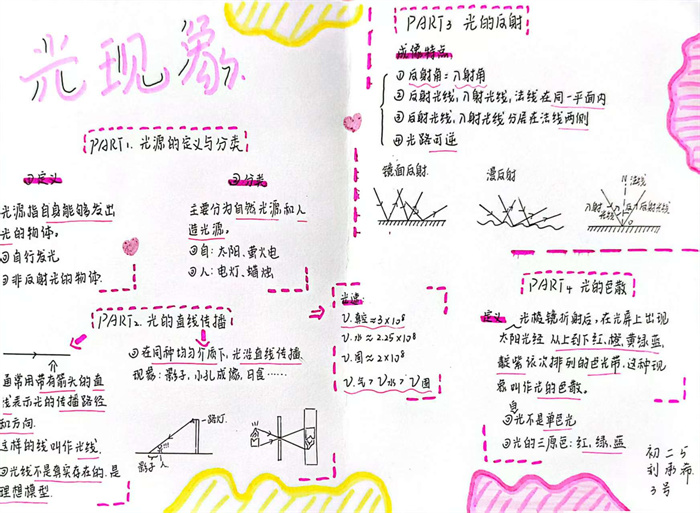 光现象
PART1. 光源的定义与分类
①定义
光源指自身能够发出
光的物体。
①自行发光
②非反射光的物体.
②分类
主要分为自然光源和人
造光源。
①自: 太阳、萤火电
②人: 电灯、蜡烛
PART2. 光的直线传播
通常用带有箭头的直
线表示光的传播路径
和方向.
这样的线叫作光线.
②光线不是真实存在的.是
理想模型.
①在同种均匀介质下, 光沿直线传播.
现象: 影子, 小孔成像, 日食……
路灯
影子 人
光速:
V.真空≈3×10⁸
V.水≈2.25×10⁸
V.固≈2×10⁸
V.气>V水>V固
PART3 光的反射
成像特点
①反射角=入射角
②反射光线, 入射光线, 法线在同一平面内
③反射光线, 入射光线分居在法线两侧
④光路可逆
镜面反射
漫反射
N 法线
入射光线
反射光线
PART4 光的色散
定义: 光被镜折射后, 在光屏上出现
太阳光经 从上到下红, 橙, 黄绿蓝,
靛紫依次排列的色光带, 这种现
象叫作光的色散.
①光不是单色光
②光的三原色: 红, 绿, 蓝
初二5
刘
3号